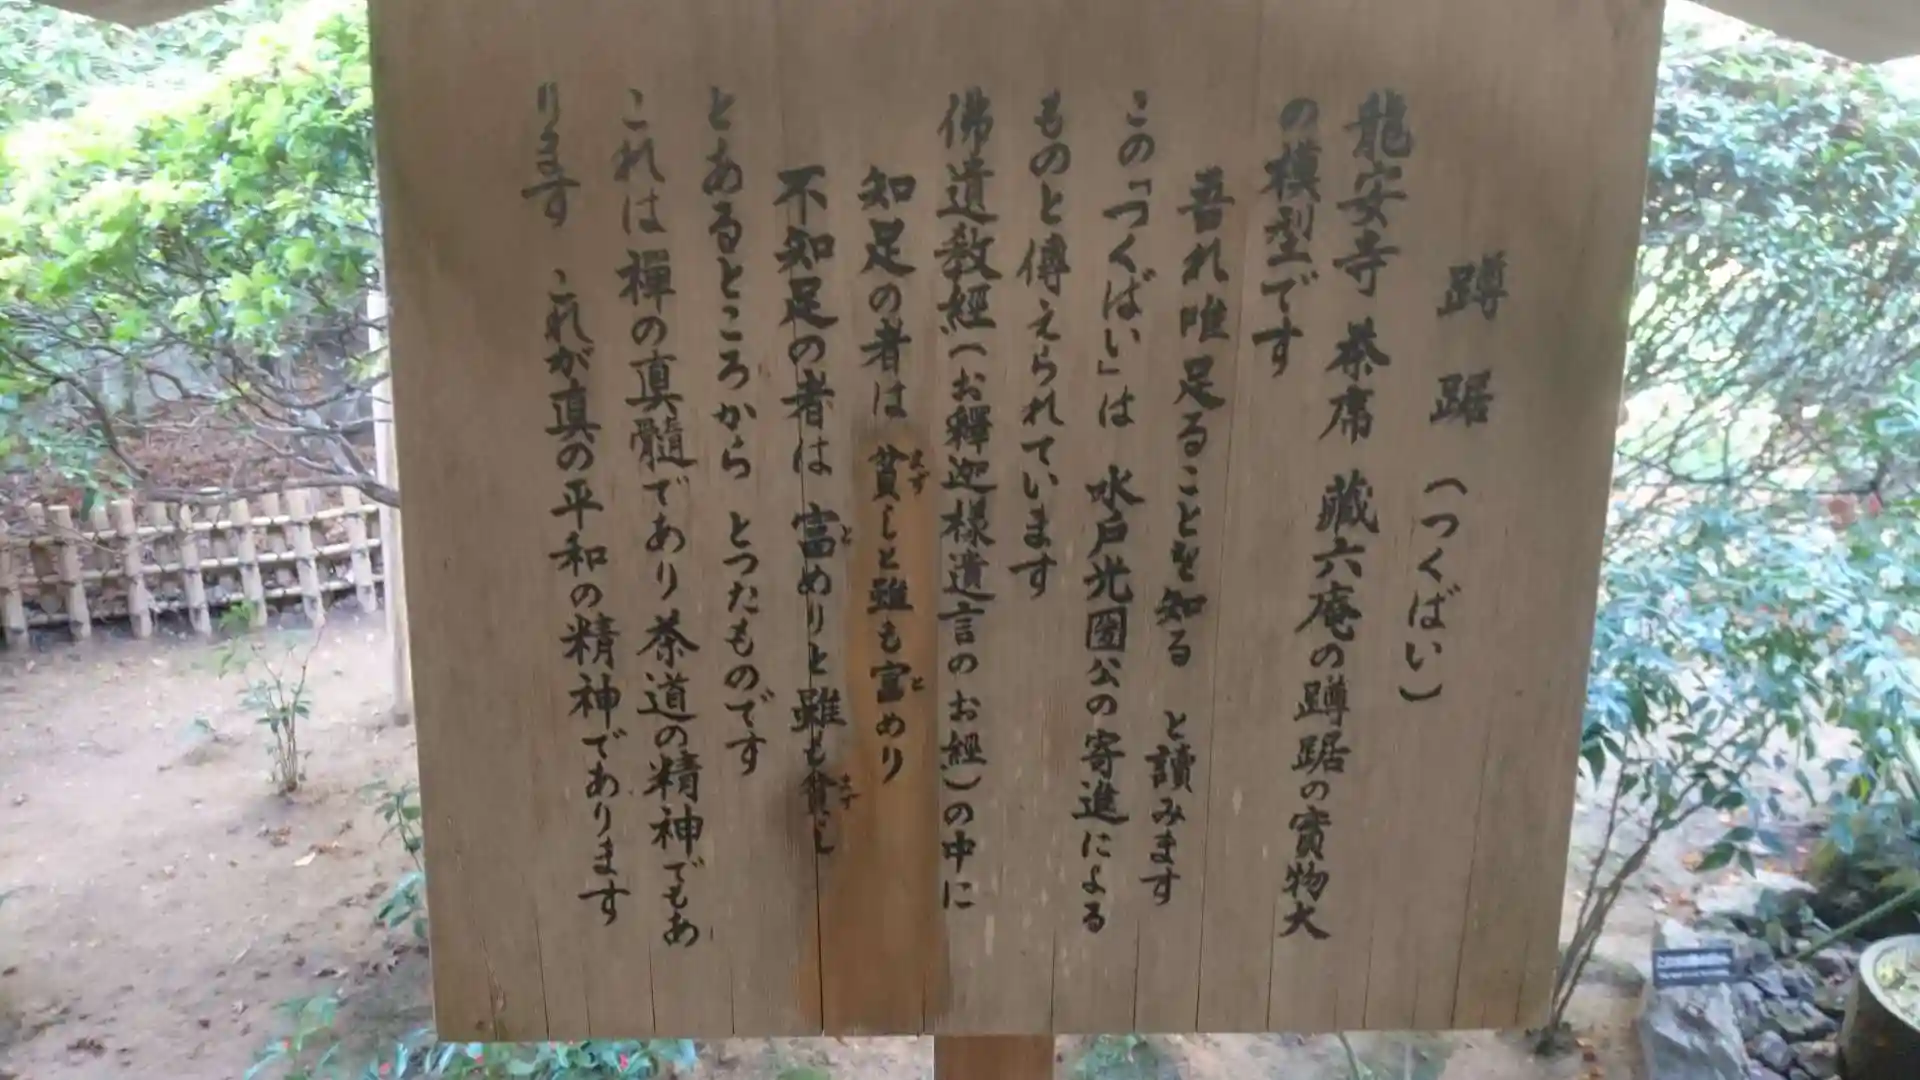 蹲踞（つくばい）
龍安寺 茶席 藏六庵の蹲踞の實物大
の模型です
吾れ唯足ることを知る と讀みます
この「つくばい」は 水戸光圀公の寄進による
ものと傳えられています
佛遺教經（お釋迦様遺言のお經）の中に
知足の者は 貧しと雖も富めり
まず
と
不知足の者は 富めりと雖も貧し
と
まず
とあるところから とつたものです
これは禪の真髓であり茶道の精神でもあ
ります これが真の平和の精神であります